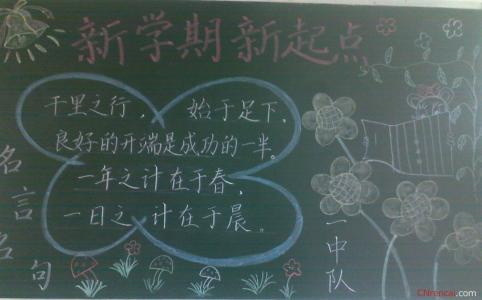 新学期新起点
千里之行，始于足下，
良好的开端是成功的一半。
一年之计在于春，
一日之计在于晨。
名言名句
一中队
CNrencai.com